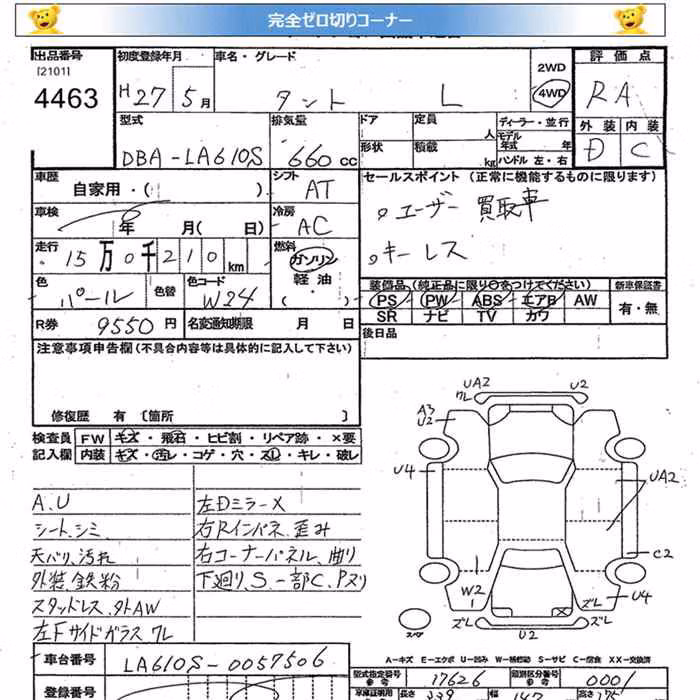 完全ゼロ切りコーナー
出品番号
[2101]
4463
初度登録年月
H27年5月
車名・グレード
タント L
2WD
4WD
評価点
RA
外装 内装
D C
型式
DBA-LA610S
排気量
660 cc
ドア
形状
定員
人
積載
kg
ディーラー・並行
モデル
年式 年
ハンドル 左・右
車歴
自家用・( )
シフト
AT
車検
年 月( 日)
冷房
AC
走行
15万0千210km
燃料
ガソリン
軽油
( )
色
パール
色替
色コード
W24
R券
9550円
名変通知期限 月 日
セールスポイント(正常に機能するものに限ります)
。ユーザー買取車
。キーレス
装備品(純正品に限り○をつけてください)
PS PW ABS エアB AW
SR ナビ TV カワ
新車保証書
有・無
後日品
注意事項申告欄(不具合内容等は具体的に記入して下さい)
修復歴 有〔箇所 〕
検査員
記入欄
FW キズ・飛石・ヒビ割・リペア跡・×要
内装 キズ・汚レ・コゲ・穴・スレ・キレ・破レ
A.U
シート、シミ
天バリ、汚れ
外装、鉄粉
スタッドレス、外AW
左Fサイドガラス ワレ
左Dミラー×
右Rインパネ、歪み
右コーナーパネル、曲り
下廻り、S一部C、Pヌリ
UA2
ワレ
U2
A3
U2
U4
UA2
C2
W2
U4
ズレ
U2
ズレ
スペア
A-キズ E-エクボ U-凹み W-補修跡 S-サビ C-腐食 X-要交換 XX-交換済
車台番号
LA610S-0057506
登録番号
型式指定番号
参考
17626
類別区分番号
参考
0001
長さ
339
幅
147
高さ
175